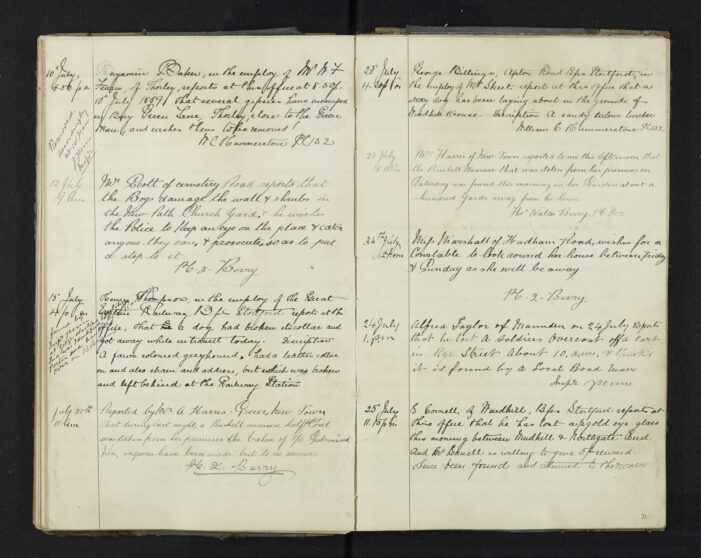 10 July
6 50 pm
Benjamin Baker, in the employ of Mr W F
of Thorley, reports at this office at 8.50 pm
10th July 1889, that several gipsies have encamped
in Bury Green Lane, Thorley, close to the
and wishes them to be removed
W C Hummerstone PC 132
Removed
immediately
12 July
9 am
Mr Scott of cemetery Road reports that
the Boys damage the wall & shrubs in
the New Path Church Yard, & he wishes
the Police to keep an eye on the place & catch
anyone they can, & prosecute, so as to put
a stop to it
H. L. Berry
15 July
4.0 pm
Henry Thompson, in the employ of the Great
Eastern Railway B/ps Stortford reports at this
office, that a dog had broken its collar and
got away while in transit today. Description
A fawn coloured greyhound, & had a leather collar
on and also chain and address, but which was broken
and left behind at the Railway Station
found
July 20th
11 am
Reported by Mr A Harris Grocer, New Town
that during last night a Bushell measure
was taken from his premises the value of
inquires have been made but to no success
H. L. Berry
20 July
4.
George Billings, Apton Road B/ps Stortford, in
the employ of Mr Skeet, report at this office that a
stray dog has been laying about in the grounds of
Windhill House. Description A sandy colour lurcher
William C Hummerstone PC 132
22 July
Mr Harris of New Town reported to me this afternoon that
the Bushell Measure that was taken from his premises on
Saturday was found this morning in her Garden about a
hundred Yards away from his house
Walter Berry
24th July
Miss Marshall of Hadham Road, wishes for a
Constable to look round her house between Friday
& Sunday as she will be away
H. L. Berry
24 July
1. pm
Alfred Taylor of Manuden on 24 July Reports
that he lost A Soldiers Overcoat off a cart
in Rye Street About 10, a.m. &
it is found by a Local Board man
Inspr Penn
25 July
11.15 pm
E Cornell, of Windhill, B/ps Stortford reports at
this office that he has lost a gold eye glass
this morning between Windhill & Northgate End
and Mr Cornell is willing to give 5/ reward.
Since been found and returned to the owner